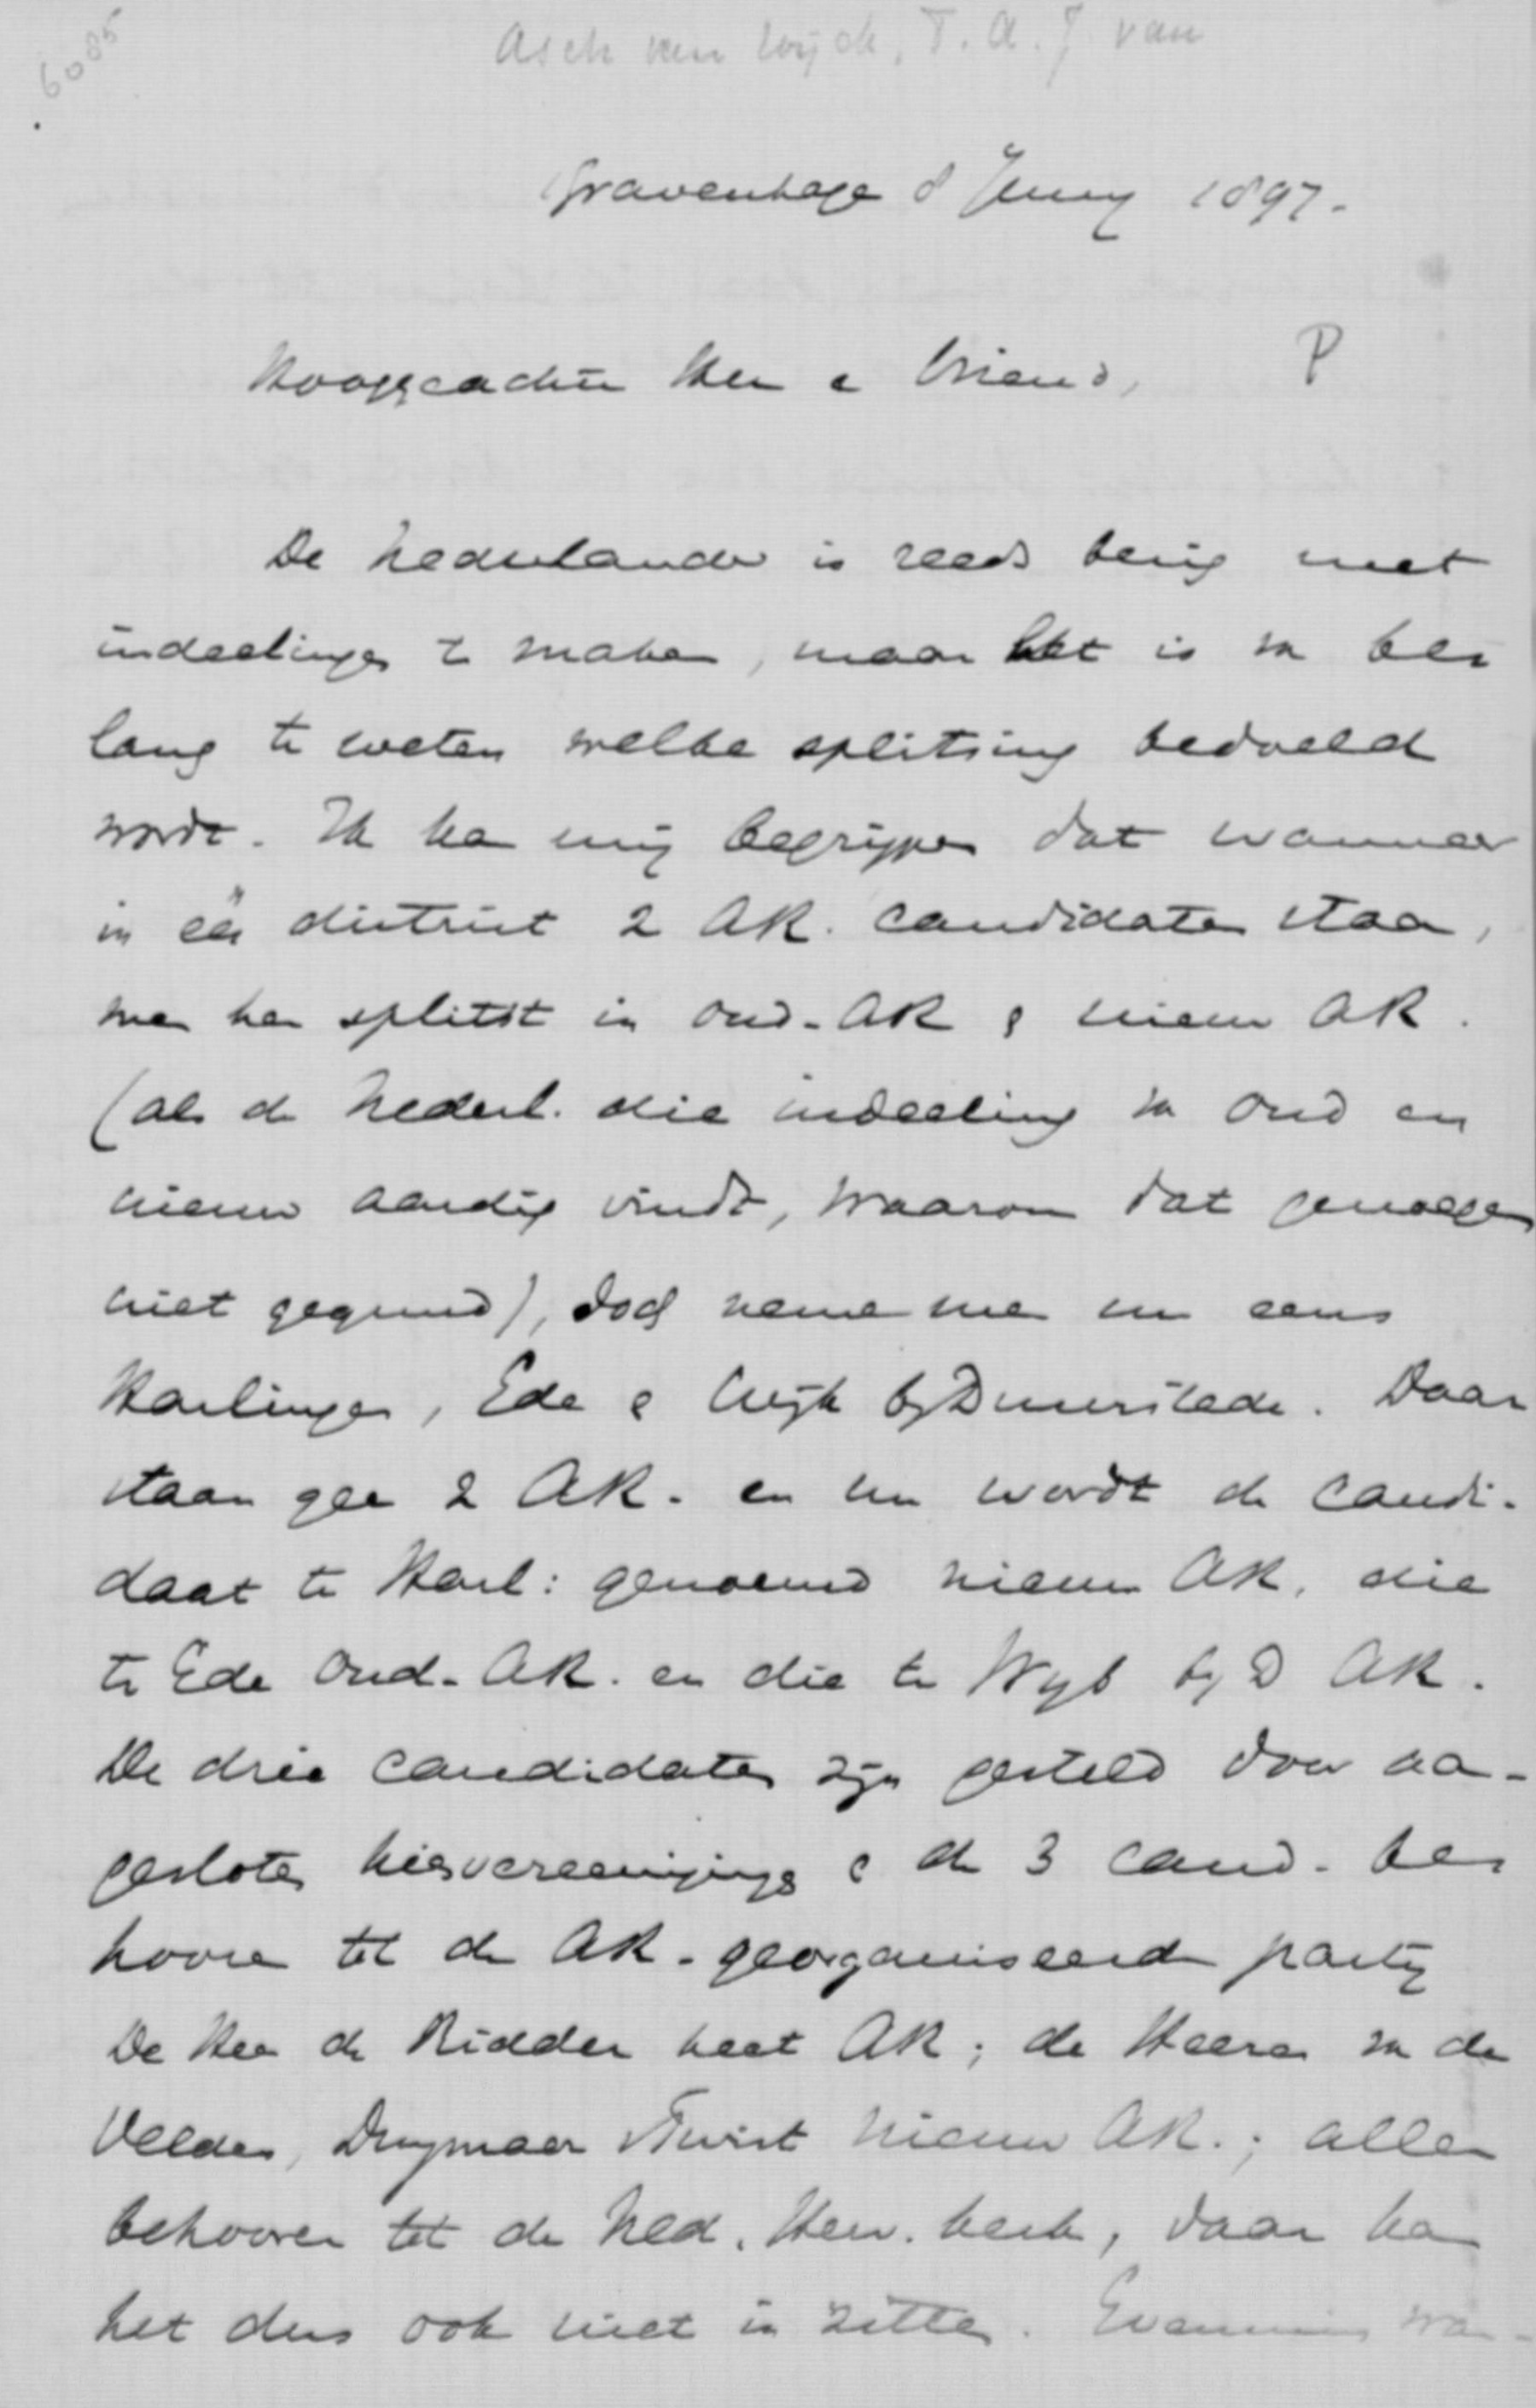 6085
Asch van Wijck, T. A. J. van
Gravenhage 8 Juny 1897.
Hooggeachte Heer e Vriend, P
De Nederlander is reeds bezig met
indeelingen te maken, maar het is van be
lang te weten welke splitsing bedoeld
wordt. Ik kan mij begrijpen dat wanneer
in één district 2 AR. candidaten staan,
men hen splitst in oud-AR & nieuw AR.
(als de Nederl. die indeeling in oud en
nieuw aardig vindt, waarom dat genoegen
niet gegund), doch neme men nu eens
Harlingen, Ede & Wijk bij Duurstede. Daar
staan geen 2 AR. en nu wordt de candi-
daat te Harl: genoemd nieuw AR, die
te Ede oud-AR. en die te Wijk bij D AR.
De drie candidaten zijn gesteld door aan-
gesloten kiesvereenigings & de 3 cand. be
hooren tot de AR-georganiseerde partij
De Heer de Ridder heet AR; de Heeren van der
Velden, Duymaer Twist nieuw AR.; allen
behooren tot de Ned. Herv. kerk, daar kan
het dus ook niet in zitten. Evenmin